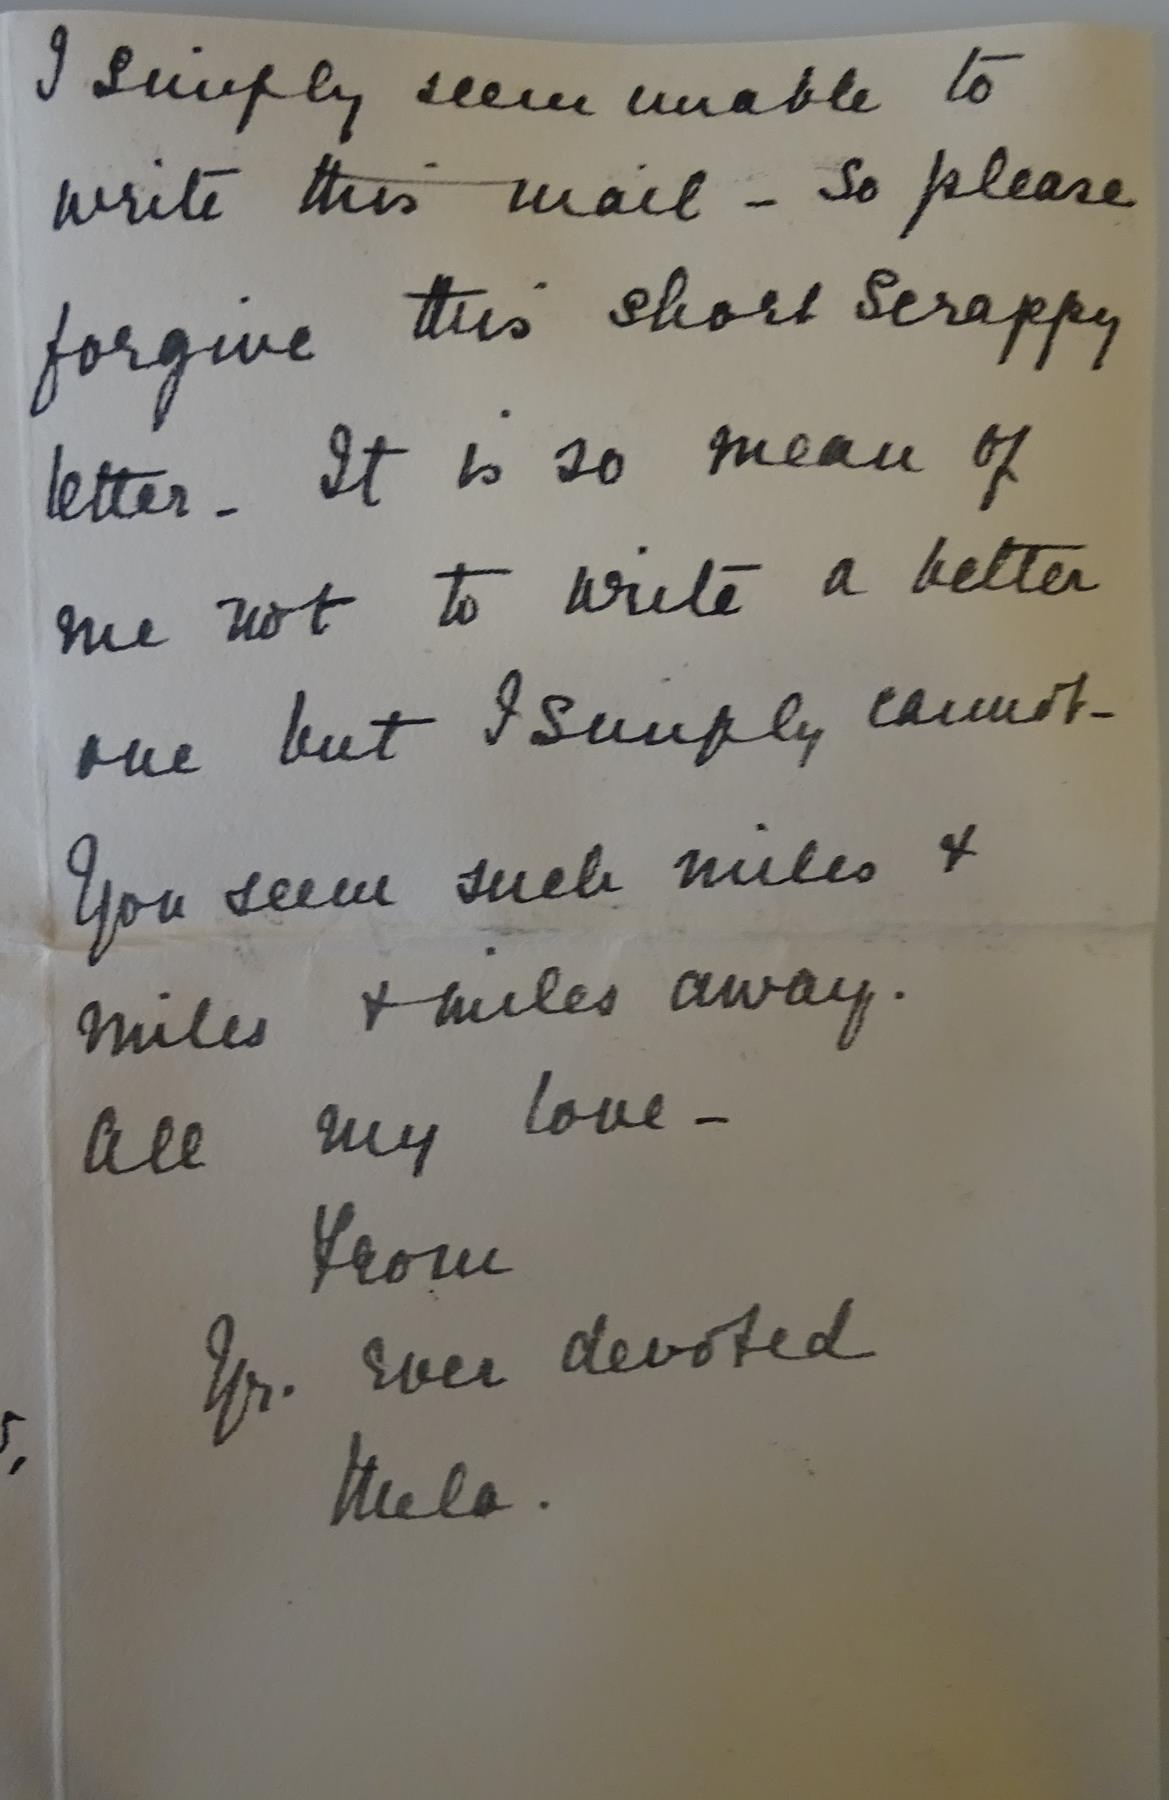 I simply seem unable to
write this mail - So please
forgive this short Scrappy
letter - It is so mean of
me not to write a better
one but I simply cannot -
You seem such miles &
miles & miles away.
All my love -
From
Yr. Ever devoted